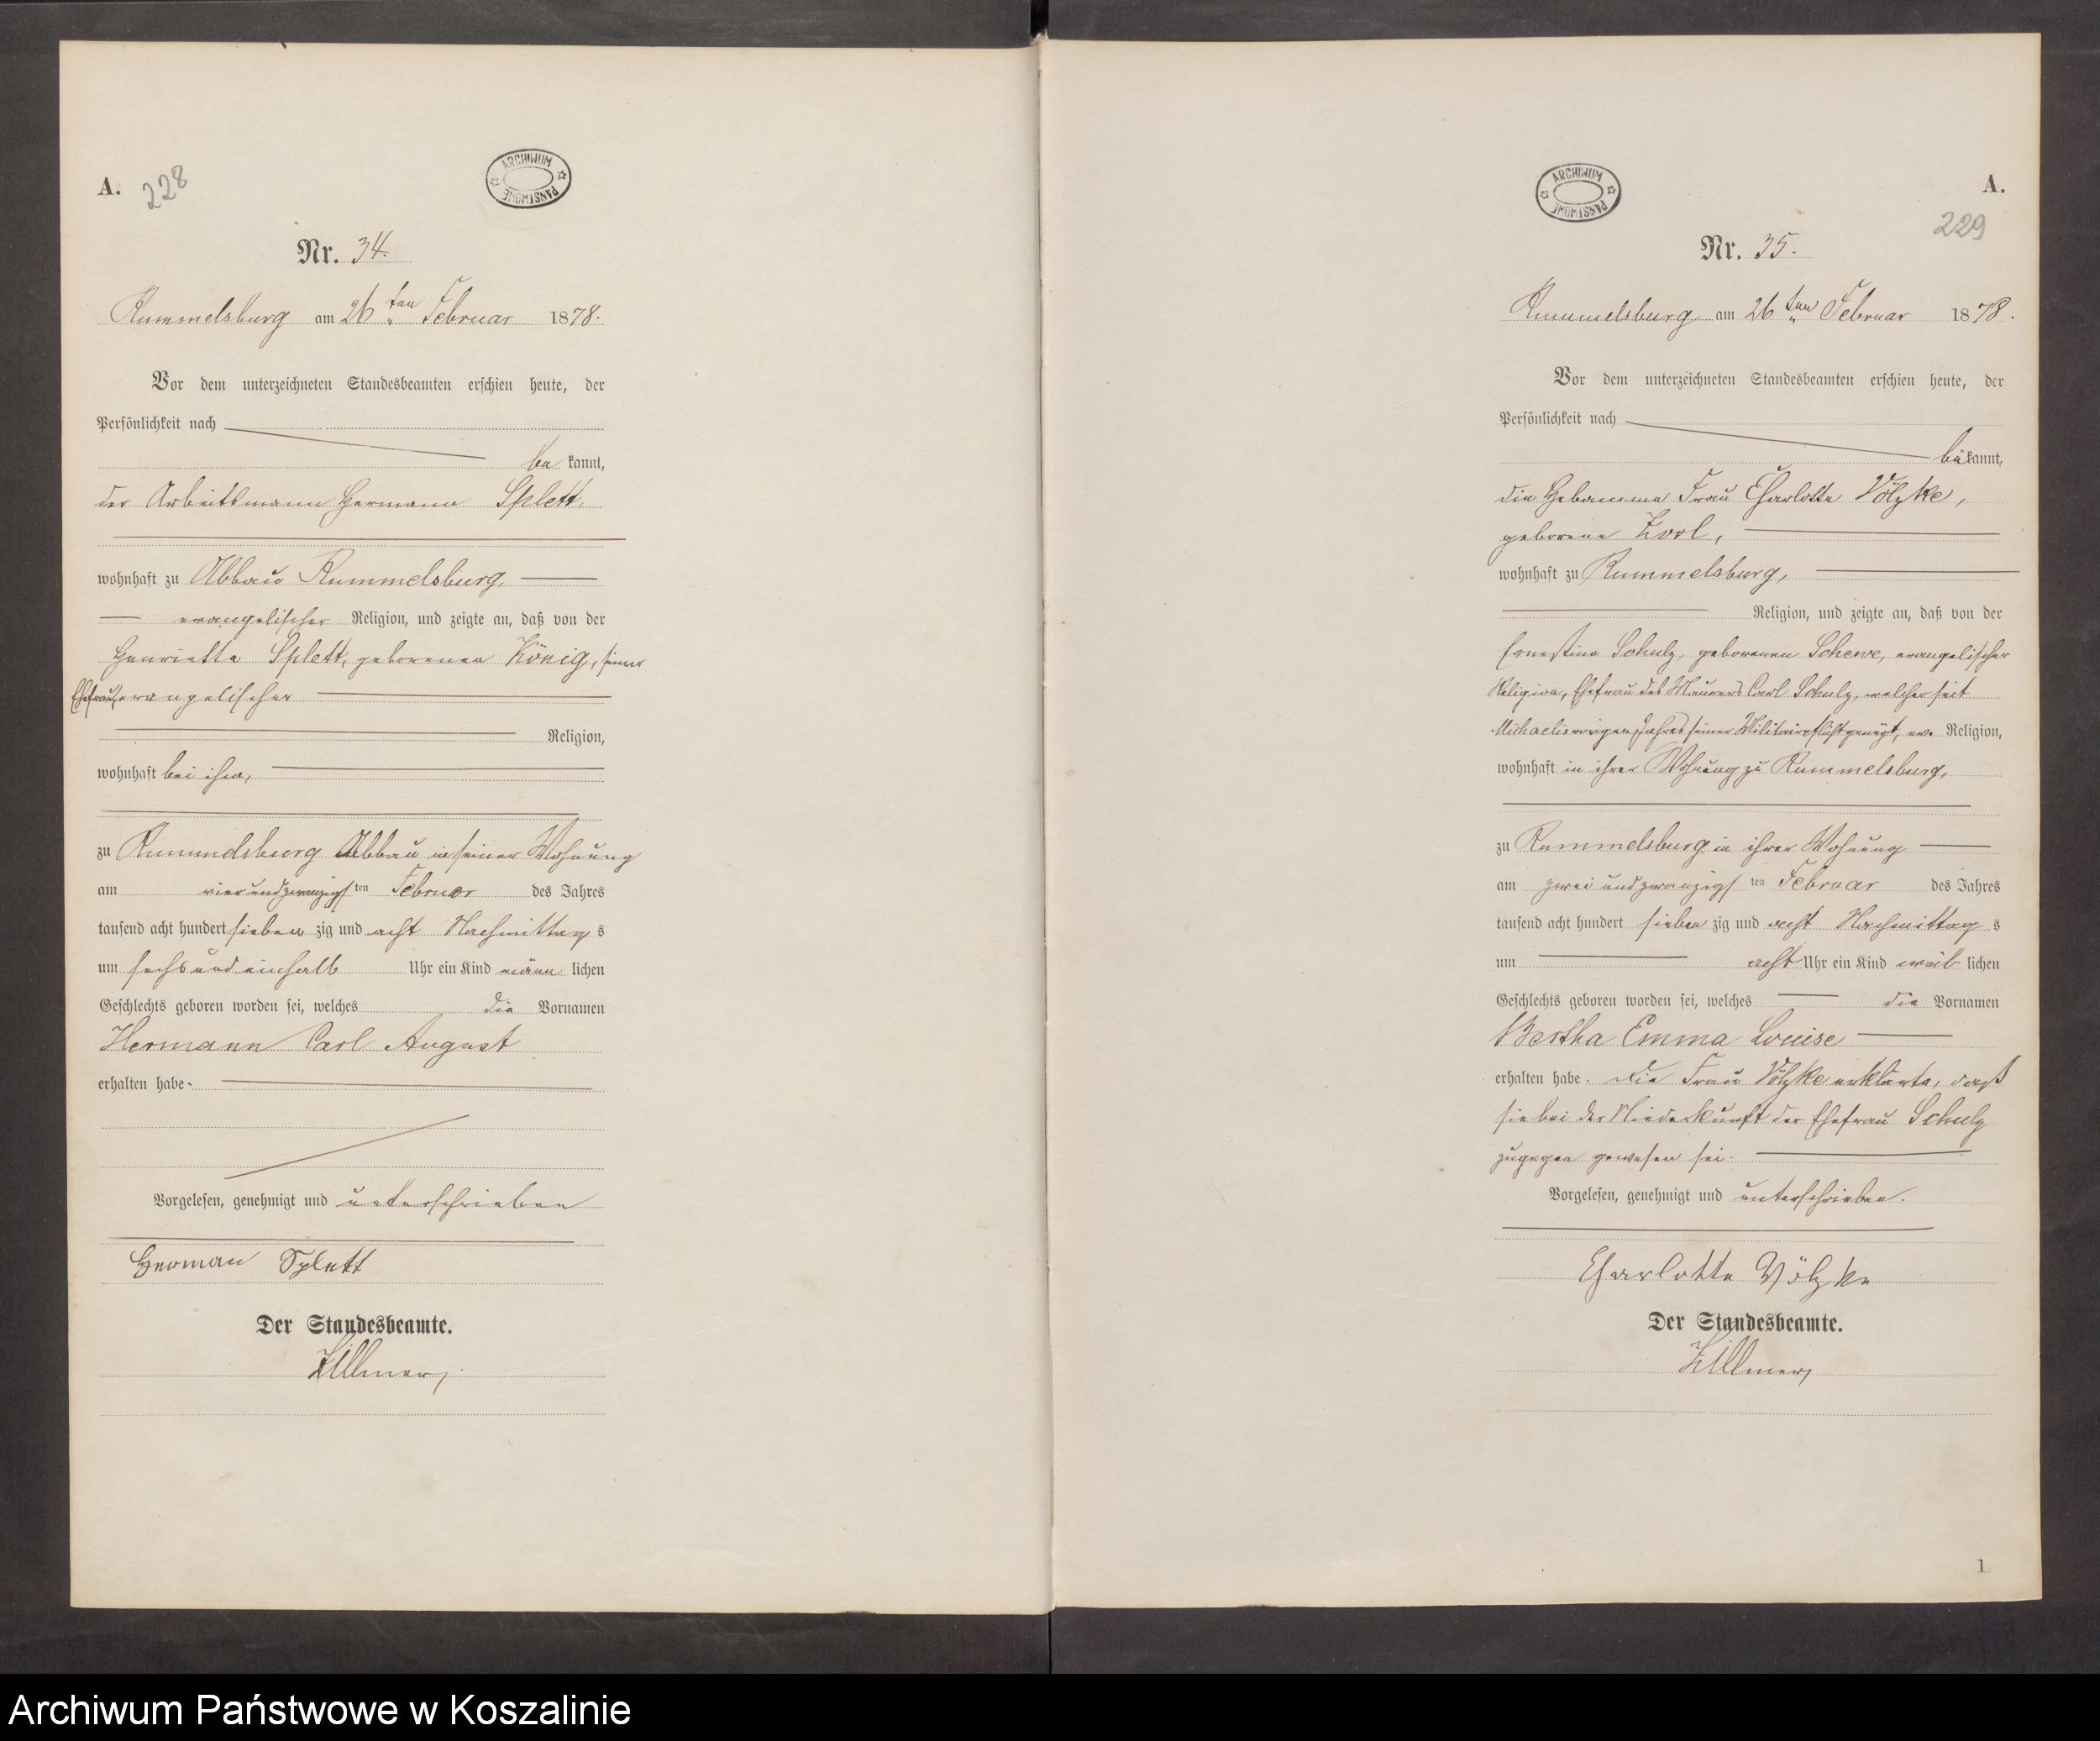 A. 228
ARCHIWUM PAŃSTWOWE
Nr. 34.
Rummelsburg am 26 ten Februar 1878.
Vor dem unterzeichneten Standesbeamten erschien heute, der
Persönlichkeit nach
be kannt,
der Arbeitsmann Hermann Splett,
wohnhaft zu Abbau Rummelsburg,
evangelischer Religion, und zeigte an, daß von der
Henriette Splett, geborenen König, seiner
Ehefrau, evangelischer
Religion,
wohnhaft bei ihm,
zu Rummelsburg Abbau in seiner Wohnung
am vierundzwanzigs ten Februar des Jahres
tausend acht hundert sieben zig und acht Nachmittag s
um sechs und einhalb Uhr ein Kind männ lichen
Geschlechts geboren worden sei, welches die Vornamen
Hermann Carl August
erhalten habe.
Vorgelesen, genehmigt und unterschrieben
Herman Splett
Der Standesbeamte.
Zillmer,
ARCHIWUM PAŃSTWOWE
A.
229
Nr. 35.
Rummelsburg am 26 ten Februar 1878.
Vor dem unterzeichneten Standesbeamten erschien heute, der
Persönlichkeit nach
be kannt,
die Hebamme Frau Charlotte Völzke,
geborene
wohnhaft zu Rummelsburg,
Religion, und zeigte an, daß von der
Ernestine Schulz, geborenen Schewe, evangelischer
Religion, Ehefrau des Maurers Carl Schulz, welcher seit
Michaelis vorigen Jahres seiner Militairpflicht genügt, Religion,
wohnhaft in ihrer Wohnung zu Rummelsburg,
zu Rummelsburg in ihrer Wohnung
am zwei und zwanzigs ten Februar des Jahres
tausend acht hundert sieben zig und acht Nachmittag s
um acht Uhr ein Kind weib lichen
Geschlechts geboren worden sei, welches die Vornamen
Bertha Emma Louise
erhalten habe. Die Frau Völzke erklärte, daß
sie bei der Niederkunft der Ehefrau Schulz
zugegen gewesen sei.
Vorgelesen, genehmigt und unterschrieben.
Charlotte Völzke
Der Standesbeamte.
Zillmer,
1
Archiwum Państwowe w Koszalinie